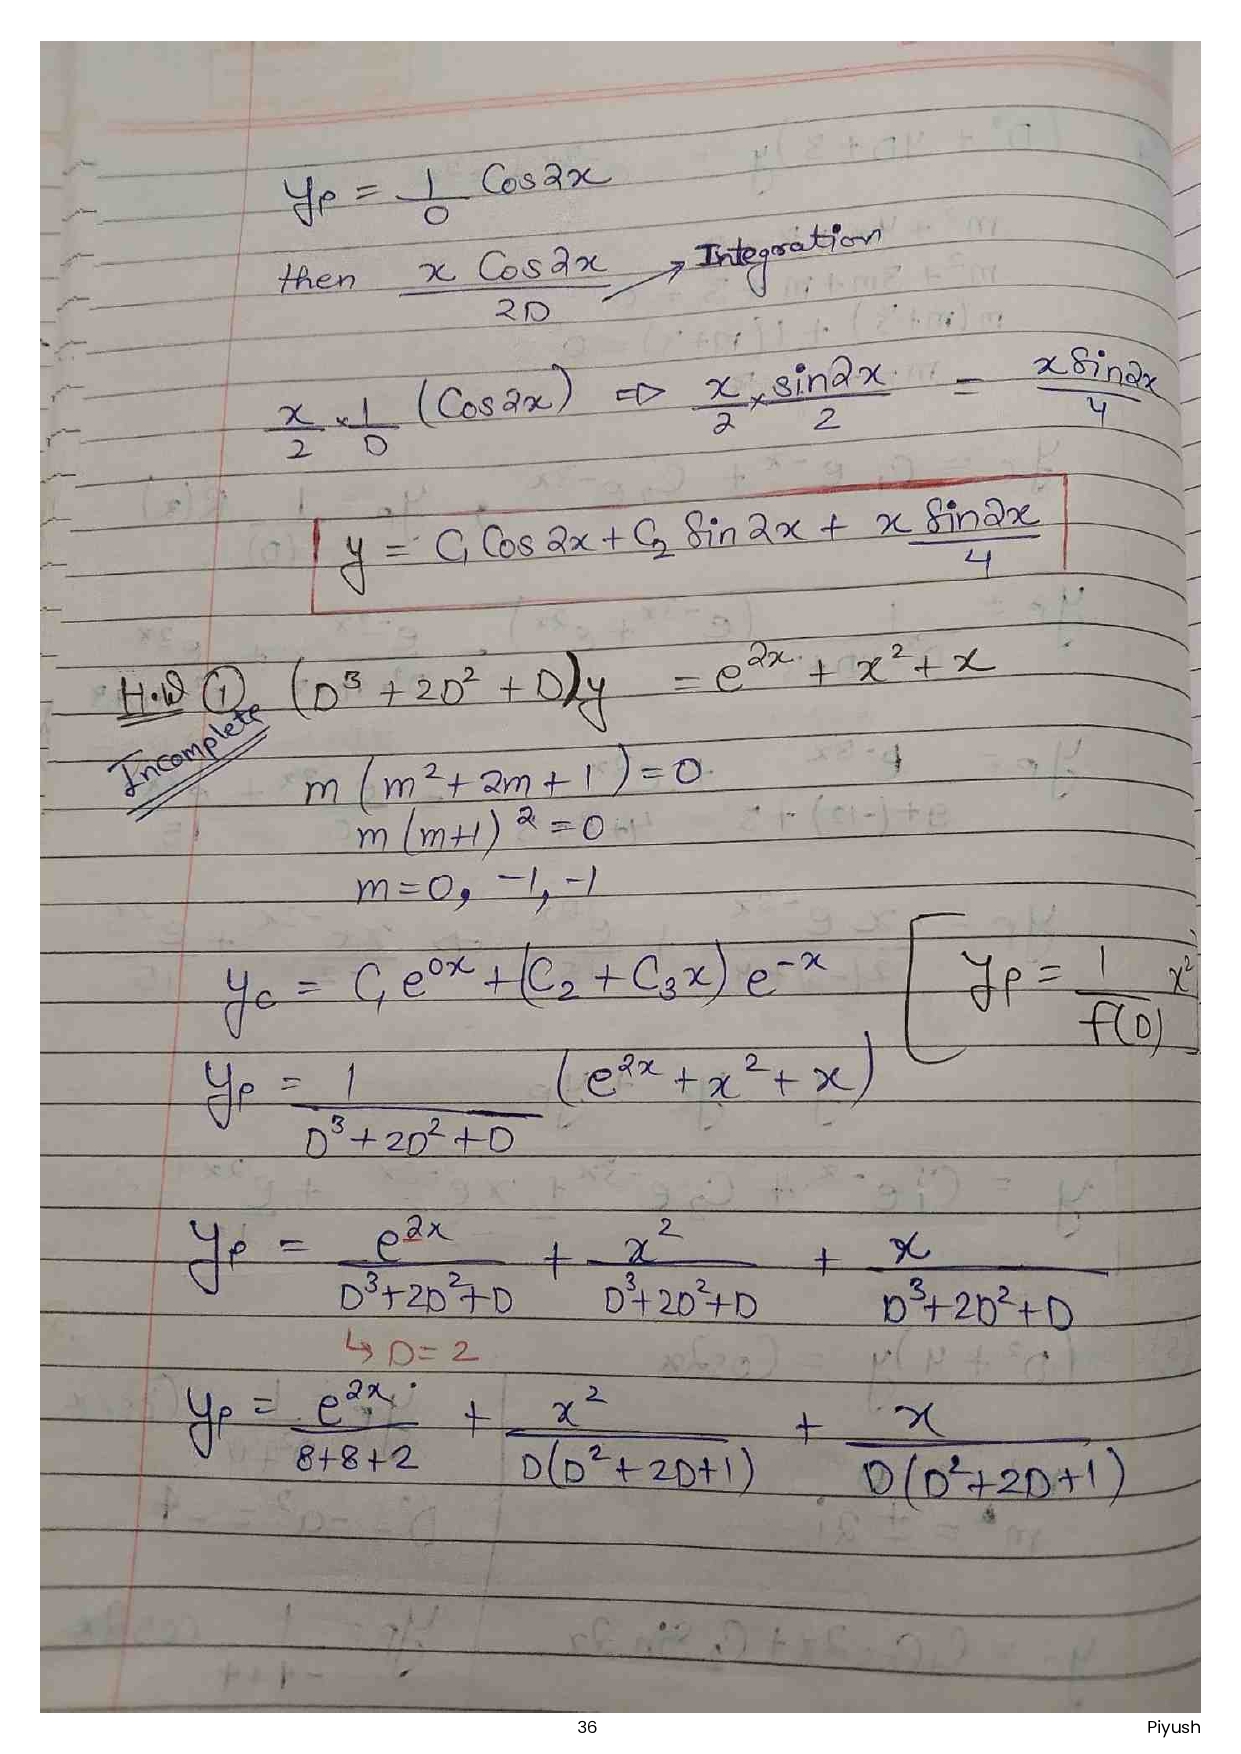 yp = 1/0 Cos2x
then x Cos2x / 2D → Integration
x/2 × 1/D (Cos2x) ⇒ x/2 × sin2x/2 = x Sin2x/4
y = C₁ Cos2x + C₂ Sin2x + x Sin2x/4
H.W ① (D³ + 2D² + D)y = e^2x + x² + x
Incomplete
m(m² + 2m + 1) = 0
m(m+1)² = 0
m = 0, -1, -1
yc = C₁e^0x + (C₂ + C₃x) e^-x [ yp = 1/f(D) x²
yp = 1/(D³ + 2D² + D) (e^2x + x² + x)
yp = e^2x/(D³+2D²+D) + x²/(D³+2D²+D) + x/(D³+2D²+D)
↳ D = 2
yp = e^2x/(8+8+2) + x²/(D(D²+2D+1)) + x/(D(D²+2D+1))
36 Piyush